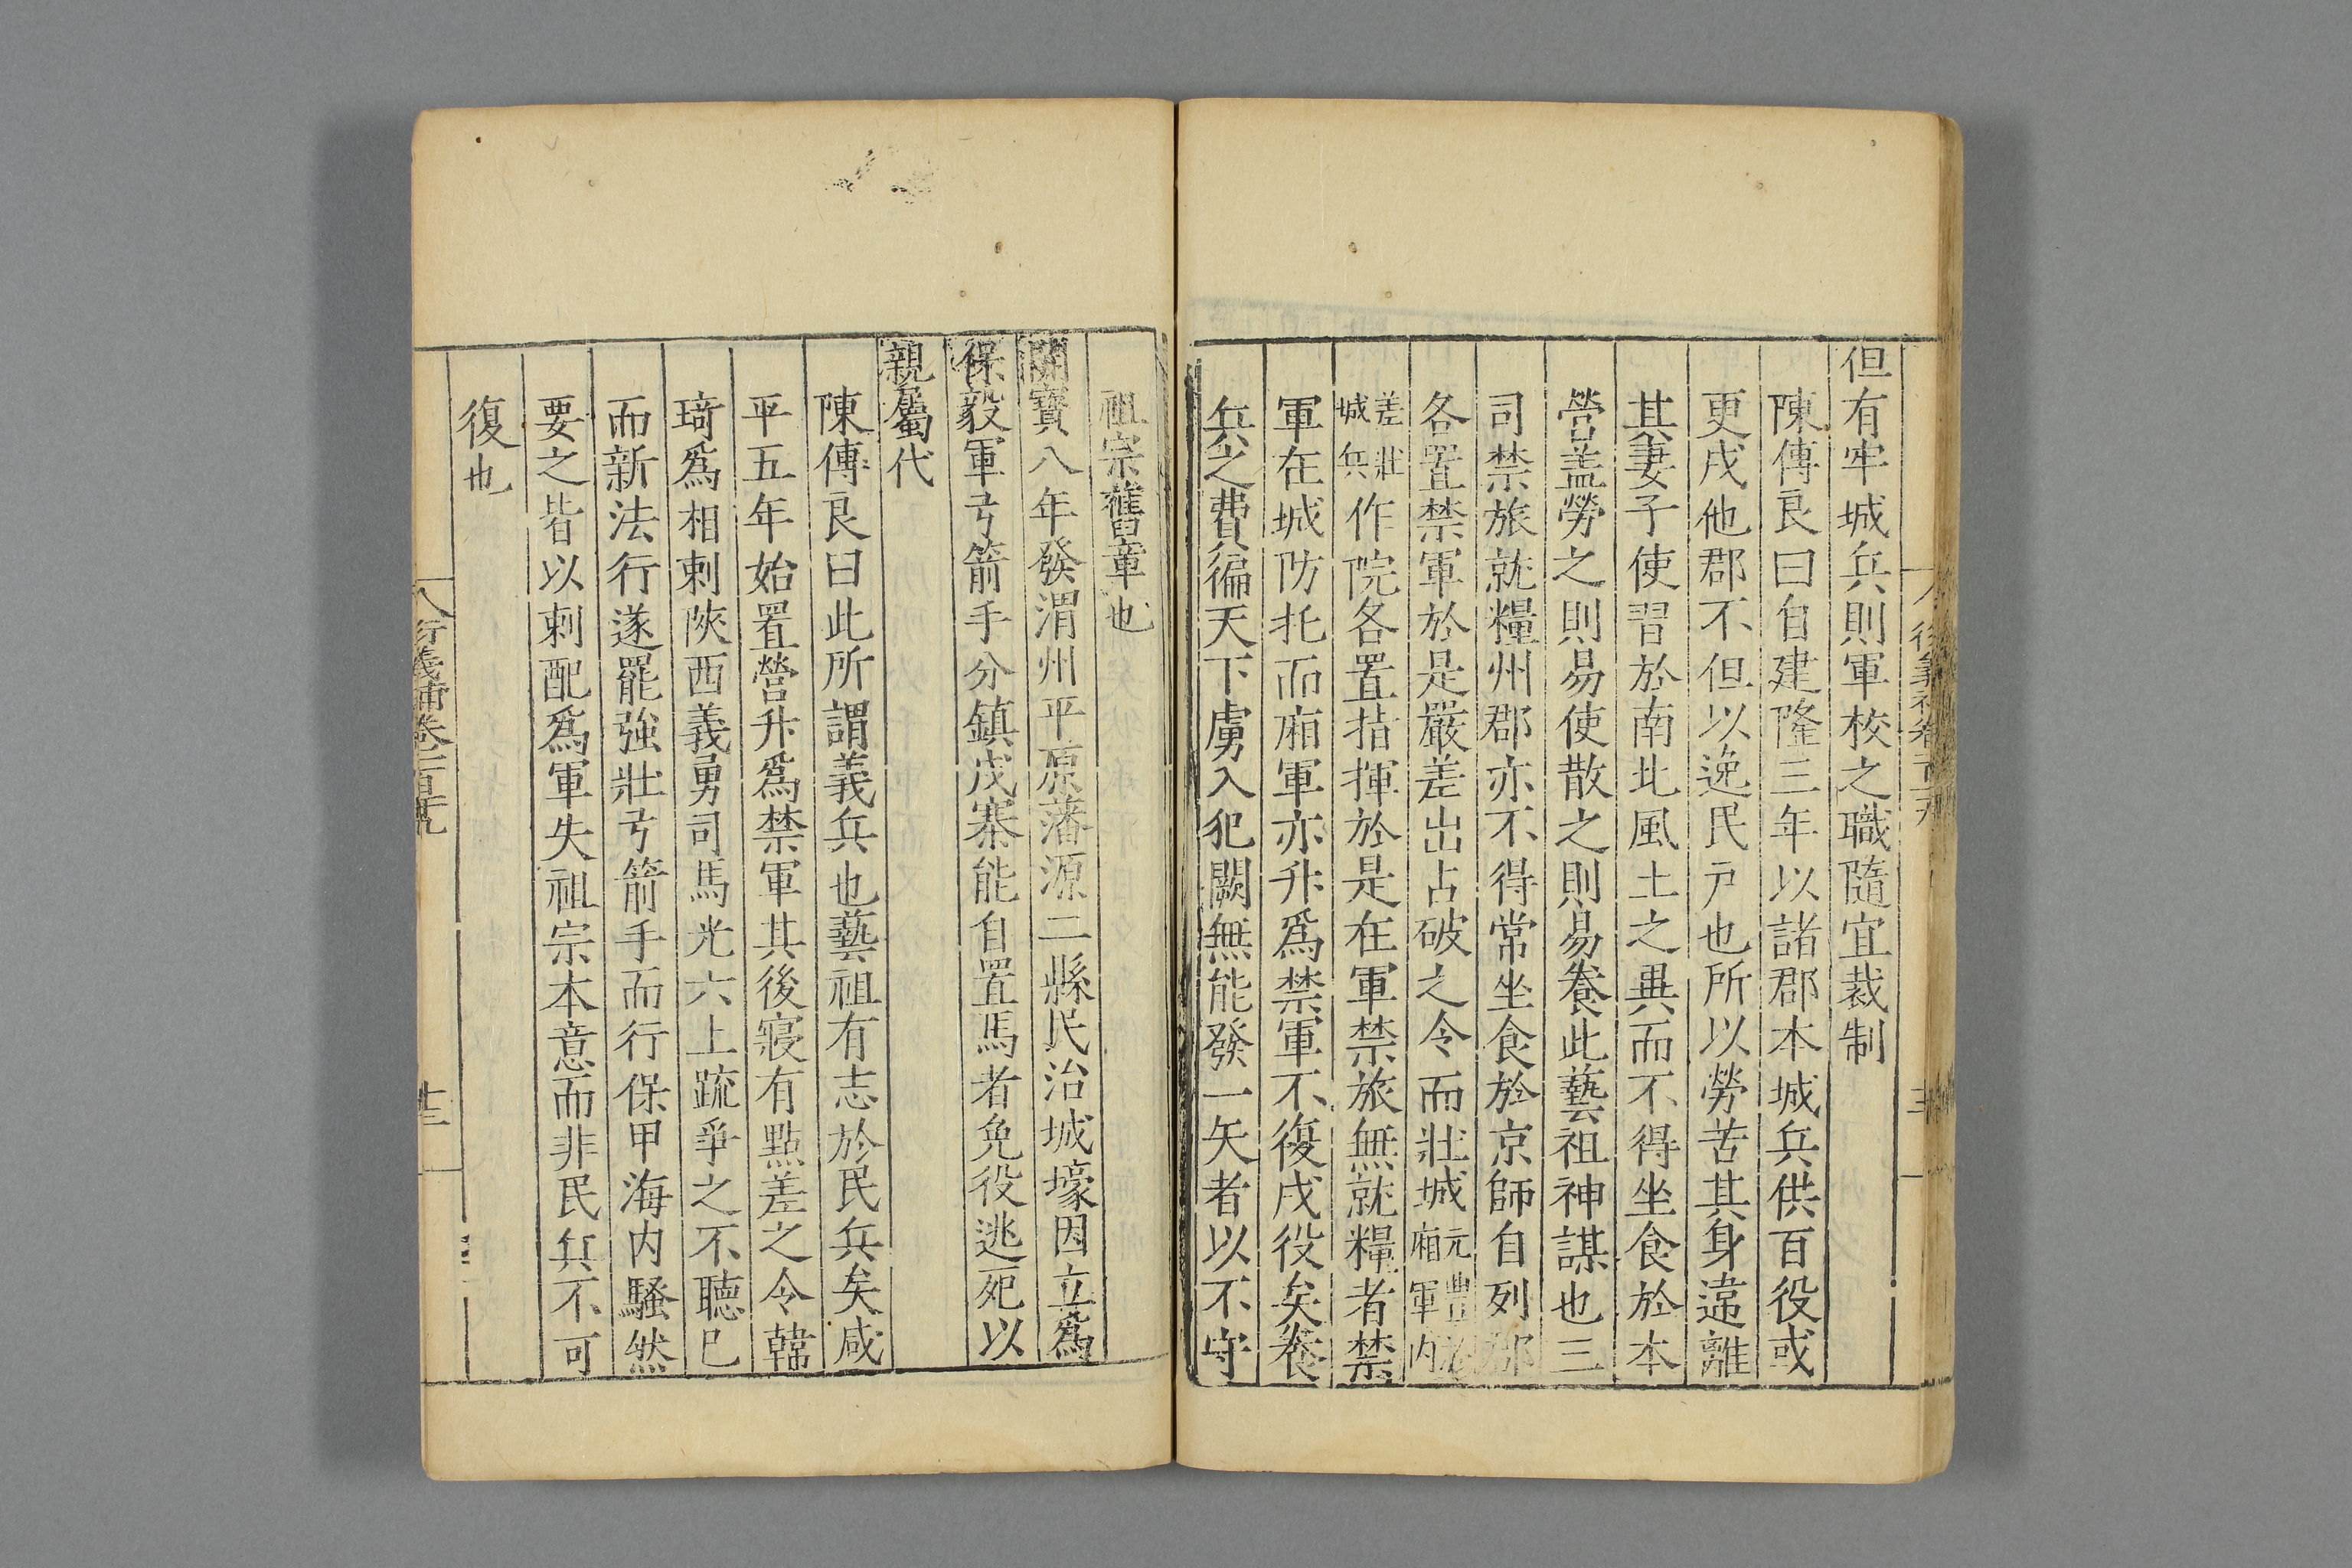 但有牢城兵則軍校之職隨宜裁制
陳傅良曰自建隆三年以諸郡本城兵供百役或
更戍他郡不但以逸民戶也所以勞苦其身違離
其妻子使習於南北風土之異而不得坐食於本
營蓋勞之則易使散之則易養此藝祖神謀也三
司禁旅就糧州郡亦不得常坐食於京師自列郡
各置禁軍於是嚴差出占破之令而壯城元豐
廂軍内
差壯
城兵作院各置指揮於是在軍禁旅無就糧者禁
軍在城防托而廂軍亦升爲禁軍不復戍役矣養
兵之費徧天下虜入犯闕無能發一矢者以不守
祖宗舊章也
開寶八年發渭州平原藩源二縣民治城壕因立爲
保毅軍弓箭手分鎮戍寨能自置馬者免役逃死以
親屬代
陳傅良曰此所謂義兵也藝祖有志於民兵矣咸
平五年始置營升爲禁軍其後寢有點差之令韓
琦爲相刺陝西義勇司馬光六上疏爭之不聽已
而新法行遂罷強壯弓箭手而行保甲海内騷然
要之皆以刺配爲軍失祖宗本意而非民兵不可
復也
衍義補卷一百十九
十三